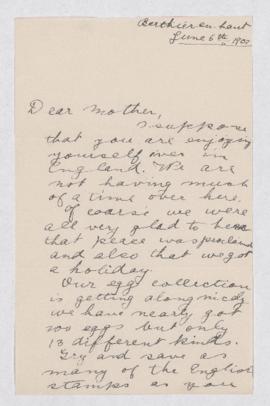 Berthier-en-haut
June 6th, 1902
Dear Mother,
I suppose
that you are enjoying
yourself over in
England. We are
not having much
of a time over here.
Of coarse we were
all very glad to hear
that peace was
and also that we got
a holiday.
Our egg collection
is getting along nicely
we have nearly got
100 eggs but only
13 different kinds.
Try and save as
many of the English
stamps as you